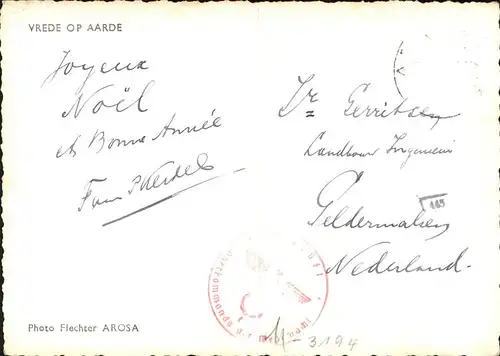 VREDE OP AARDE
Joyeux
Noël
et Bonne Année
Ir Gerritsen
Landbouw Ingenieur
445
Geldermalsen
Nederland.
Photo Flechter AROSA
3194